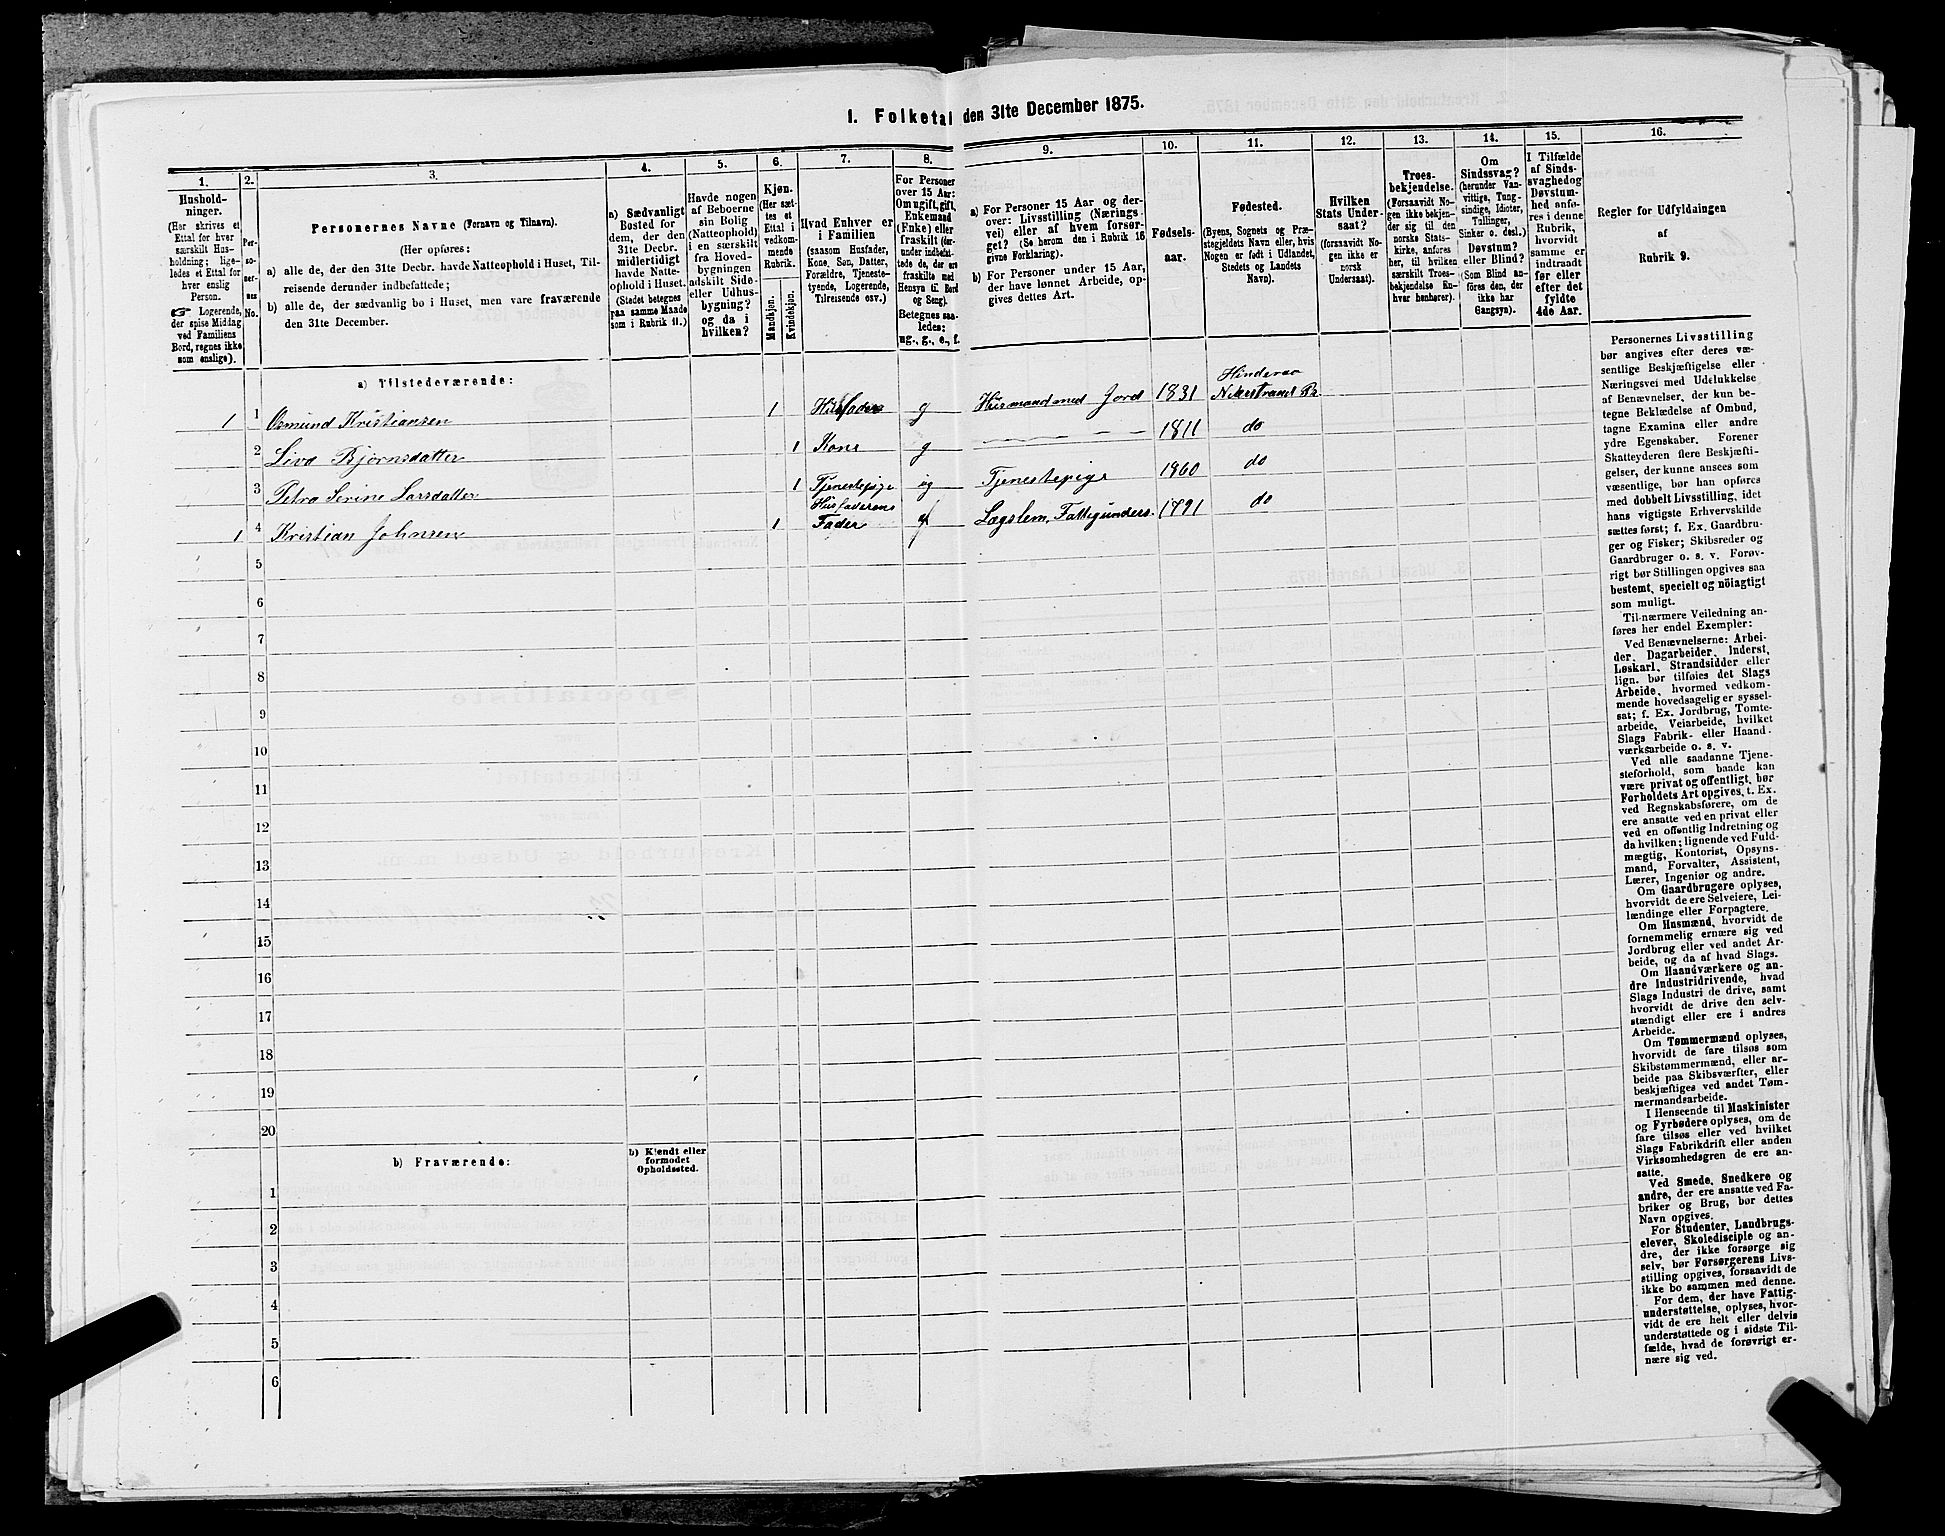 I. Folketal den 31te December 1875.
1.
Hushold-
ninger.
(Her skrives et
Ettal for hver
særskilt Hus-
holdning; lige-
ledes et Ettal for
hver enslig
Person.
☞ Logerende,
der spise Middag
ved Familiens
Bord, regnes ikke
som enslige).
2.
Per-
so-
ner-
nes
No.
3.
Personernes Navne (Fornavn og Tilnavn).
(Her opføres:
a) alle de, der den 31te Decbr. havde Natteophold i Huset, Til-
reisende derunder indbefattede;
b) alle de, der sædvanlig bo i Huset, men vare fraværende
den 31te December.
4.
a) Sædvanligt
Bosted for
dem, der den
31te Decbr.
midlertidigt
havde Natte-
ophold i Huset.
(Stedet betegnes
paa samme Maade
som i Rubrik 11.)
5.
Havde nogen
af Beboerne
sin Bolig
(Natteophold)
i en særskilt
fra Hoved-
bygningen
adskilt Side-
eller Udhus-
bygning?
og da i
hvilken?
6.
Kjøn.
(Her sæt-
tes et
Ettal i
vedkom-
mende
Rubrik.
Mandkjøn.
Kvindekjøn.
7.
Hvad Enhver er
i Familien
(saasom Husfader,
Kone, Søn, Datter,
Forældre, Tjeneste-
tyende, Logerende,
Tilreisende osv.)
8.
For Personer
over 15 Aar:
Om ugift, gift,
Enkemand
(Enke) eller
fraskilt (her-
under indbefat-
tede de, der ere
fraskilte med
Hensyn til Bord
og Seng).
Betegnes saa-
ledes:
ug., g., e., f.
9.
a) For Personer 15 Aar og der-
over: Livsstilling (Nærings-
vei) eller af hvem forsør-
get? (Se herom den i Rubrik 16
givne Forklaring).
b) For Personer under 15 Aar,
der have lønnet Arbeide, op-
gives dettes Art.
10.
Fødsels-
aar.
11.
Fødested.
(Byens, Sognets og Præ-
stegjeldets Navn eller, hvis
Nogen er født i Udlandet,
Stedets og Landets
Navn).
12.
Hvilken
Stats Under-
saat?
(forsaavidt No-
gen ikke er
norsk
Undersaat).
13.
Troes-
bekjendelse.
(Forsaavidt No-
gen ikke bekjen-
der sig til den
norske Stats-
kirke, anføres
her, til hvilken
særskilt Troes-
bekjendelse En-
hver henhører).
14.
Om
Sindssvag?
(herunder Van-
vittige, Tung-
sindige, Idioter,
Tullinger,
Sinker o. desl.)
Døvstum?
eller Blind?
(Som Blind an-
føres den, der
ikke har
Gangsyn).
15.
I Tilfælde
af Sinds-
svaghed og
Døvstum-
hed anfø-
res i denne
Rubrik,
hvorvidt
samme er
indtraadt
før eller
efter det
fyldte
4de Aar.
16.
Regler for Udfyldningen
af
Rubrik 9.
a) Tilstedeværende:
1 1 Osmund Kristiansen 1 Husfader g Husmand med Jord 1831 Hinderaa
Nederstrand Pr.
2 Liva Bjørnsdatter 1 Kone g 1811 do
3 Petra Serine Larsdatter 1 Tjenestepige ug Tjenestepige 1860 do
1 4 Kristian Johnsen 1 Husfaderens
Fader Lægslem, Fattigunders. 1791 do
5
6
7
8
9
10
11
12
13
14
15
16
17
18
19
20
b) Fraværende:
b) Kjendt eller
formodet
Opholdssted.
1
2
3
4
5
6
Personernes Livsstilling
bør angives efter deres væ-
sentlige Beskjæftigelse eller
Næringsvei med Udelukkelse
af Benævnelser, der kun be-
tegne Beklædelse af Ombud,
tagne Examina eller andre
ydre Egenskaber. Forener
Skatteyderen flere Beskjæfti-
gelser, der kunne ansees som
væsentlige, bør han opføres
med dobbelt Livsstilling, idet
hans vigtigste Erhvervskilde
sættes først; f. Ex. Gaardbru-
ger og Fisker; Skibsreder og
Gaardbruger o. s. v. Forøv-
rigt bør Stillingen opgives saa
bestemt, specielt og nöiagtigt
som muligt.
Til nærmere Veiledning an-
føres her endel Exempler:
Ved Benævnelserne: Arbei-
der, Dagarbeider, Inderst,
Løskarl, Strandsidder eller
lign. bør tilføies det Slags
Arbeide, hvormed vedkom-
mende hovedsagelig er syssel-
sat; f. Ex. Jordbrug, Tomte-
arbeide, Veiarbeide, hvilket
Slags Fabrik- eller Haand-
værksarbeide o. s. v.
Ved alle saadanne Tjene-
steforhold, som baade kan
være privat og offentligt, bør
Forholdets Art opgives, t. Ex.
ved Regnskabsførere, om de
ere ansatte ved en privat eller
ved en offentlig Indretning og
da hvilken; lignende ved Fuld-
mægtig, Kontorist, Opsyns-
mand, Forvalter, Assistent,
Lærer, Ingeniør og andre.
Om Gaardbrugere oplyses,
hvorvidt de ere Selveiere, Lei-
lændinge eller Forpagtere.
Om Husmænd, hvorvidt de
fornemmelig ernære sig ved
Jordbrug eller ved andet Ar-
beide, og da af hvad Slags.
Om Haandværkere og an-
dre Industridrivende, hvad
Slags Industri de drive, samt
hvorvidt de drive den selv-
stændigt eller ere i andres
Arbeide.
Om Tømmermænd oplyses,
hvorvidt de fare tilsøs som
Skibstømmermænd, eller ar-
beide paa Skibsværfter, eller
beskjæftiges ved andet Tøm-
mermandsarbeide.
I Henseende til Maskinister
og Fyrbødere oplyses, om de
fare tilsøs eller ved hvilket
Slags Fabrikdrift eller anden
Virksomhedsgren de ere an-
satte.
Ved Smede, Snedkere og
andre, der ere ansatte ved Fa-
briker og Brug, bør dettes
Navn opgives.
For Studenter, Landbrugs-
elever, Skoledisciple og an-
dre, der ikke forsørge sig
selv, bør Forsørgerens Livs-
stilling opgives, forsaavidt de
ikke bo sammen med denne.
For dem, der have Fattig-
understøttelse, oplyses, hvor-
vidt de ere helt eller delvis
understøttede og i sidste Til-
fælde, hvad de forøvrigt er-
nære sig ved.